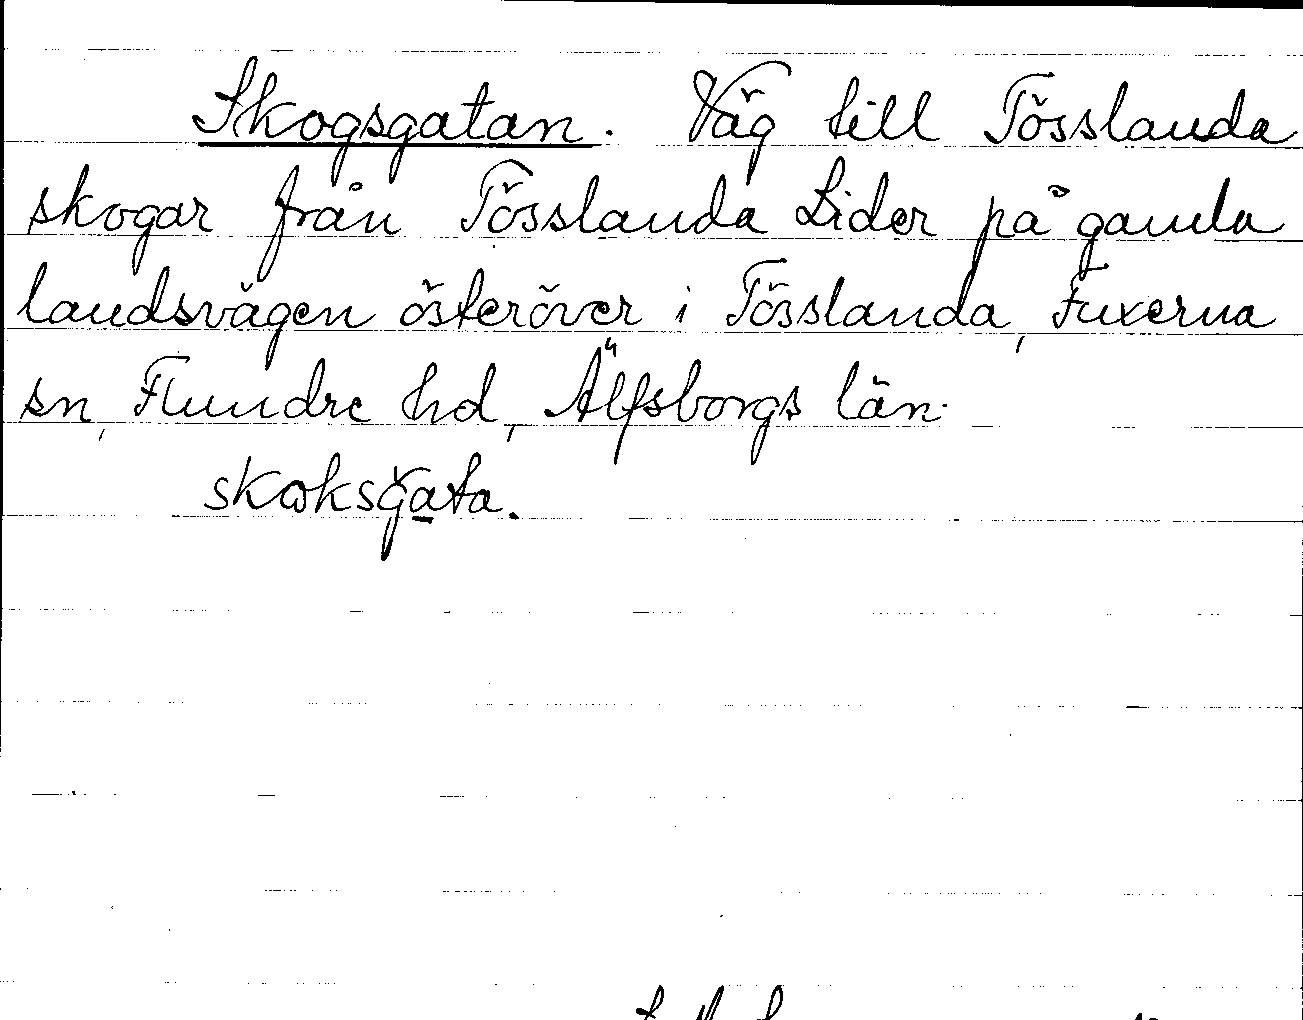 Skogsgatan. Väg till Tösslanda
skogar från Tösslanda Lider på gamla
landsvägen österöver i Tösslanda, Fuxerna
sn, Flundre hd, Älfsborgs län.
skoksgata.